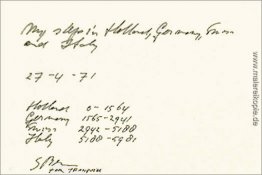 My steps in Holland, Germany,
and Italy
27-4-71
Holland 0-1564
Germany 1565-2941
2942-5188
Italy 5188-5981
www.makereilkopie.de